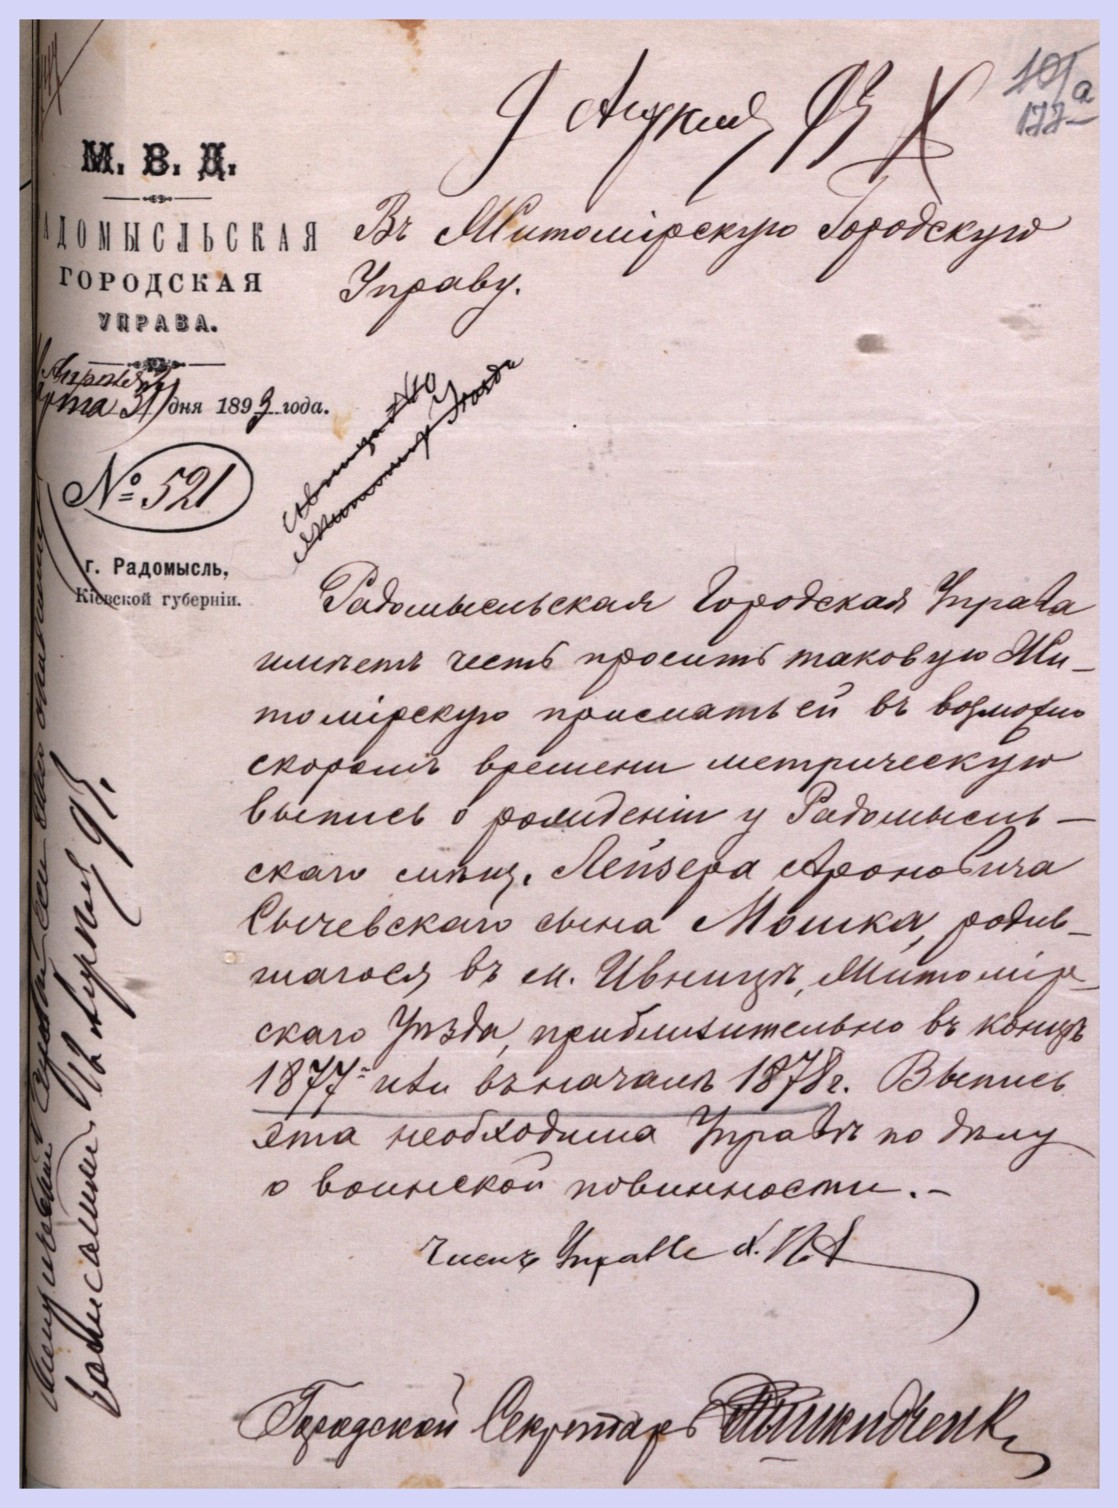 9 Апреля 93
101а
177
М. В. Д.
РАДОМЫСЛЬСКАЯ
ГОРОДСКАЯ
УПРАВА.
Апреля 2
Марта 31 дня 1893 года.
№ 521
г. Радомысль,
Кіевской губерніи.
Въ Житомірскую Городскую
Управу.
Ивница
Житомир Уезда
Радомысльская Городская Управа
имѣетъ честь просить таковую Жи-
томірскую прислать ей въ возможно
скоромъ времени метрическую
выпись о рожденіи у Радомысль-
скаго мѣщ. Лейзера Ароновича
Сычевскаго сына Мошка, родив-
шагося въ м. Ивницѣ, Житомір-
скаго Уѣзда, приблизительно въ концѣ
1877 или въ началѣ 1878 г. Выпись
эта необходима Управѣ по дѣлу
о воинской повинности.-
Членъ Управы
Городской Секретарь